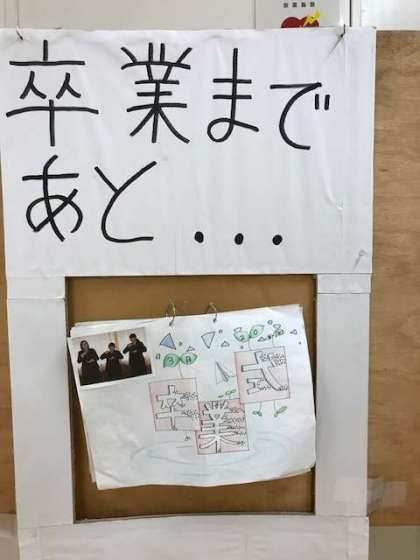 卒業まで
あと...
3月
卒業式